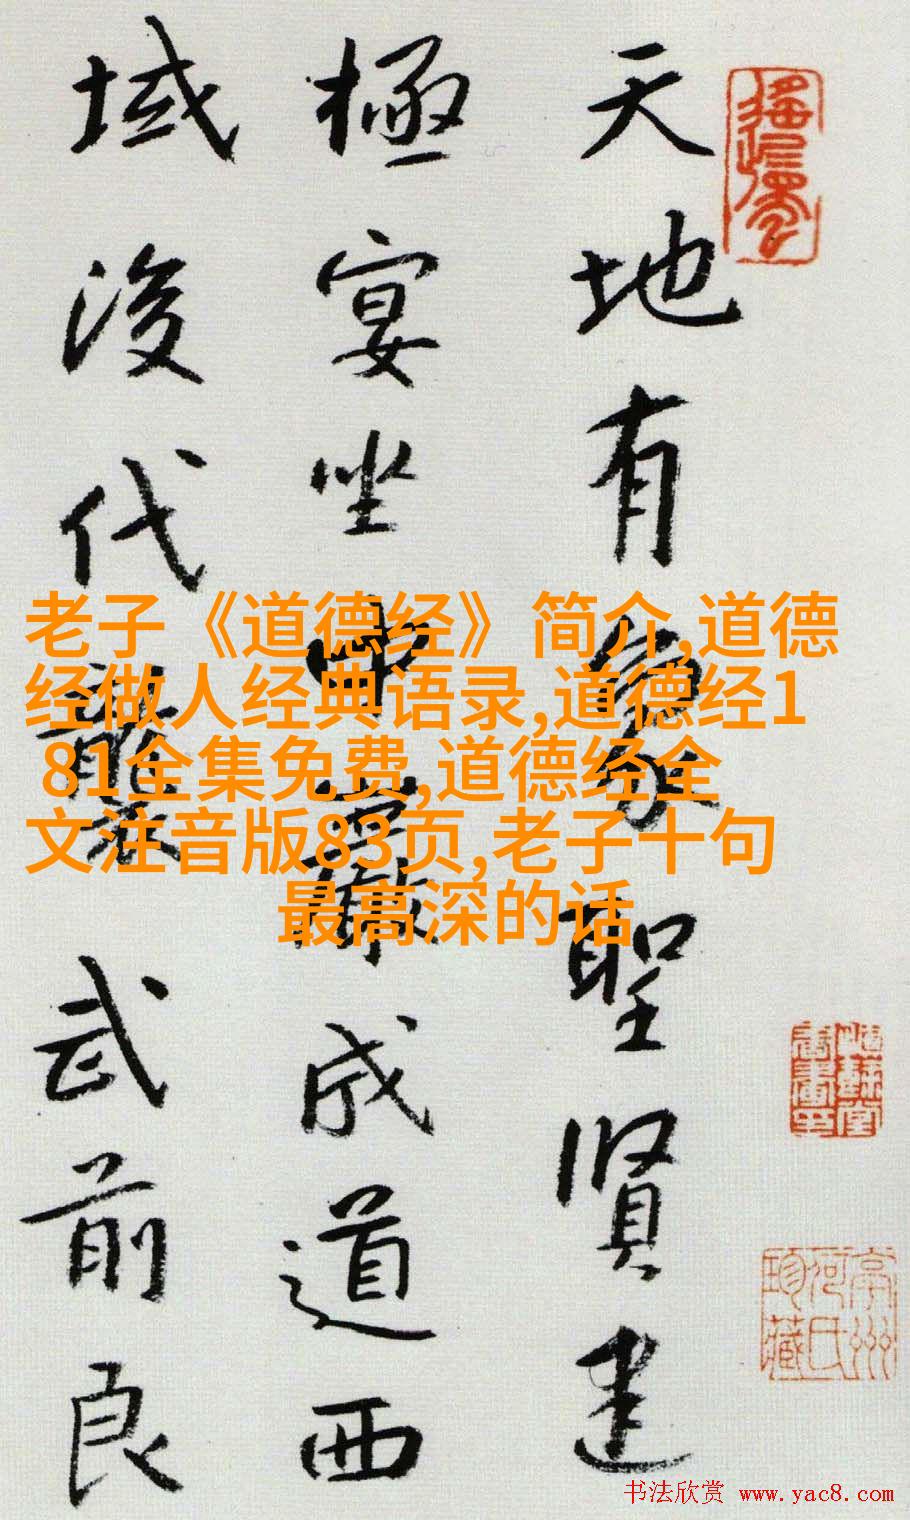 天地有象聖賢建
極宴坐中巖成道西
域後代襲武前良
老子《道德经》简介,道德
经做人经典语录,道德经1
81全集免费,道德经全
文注音版83页,老子十句
最高深的话
书法欣赏 www.yac8.com